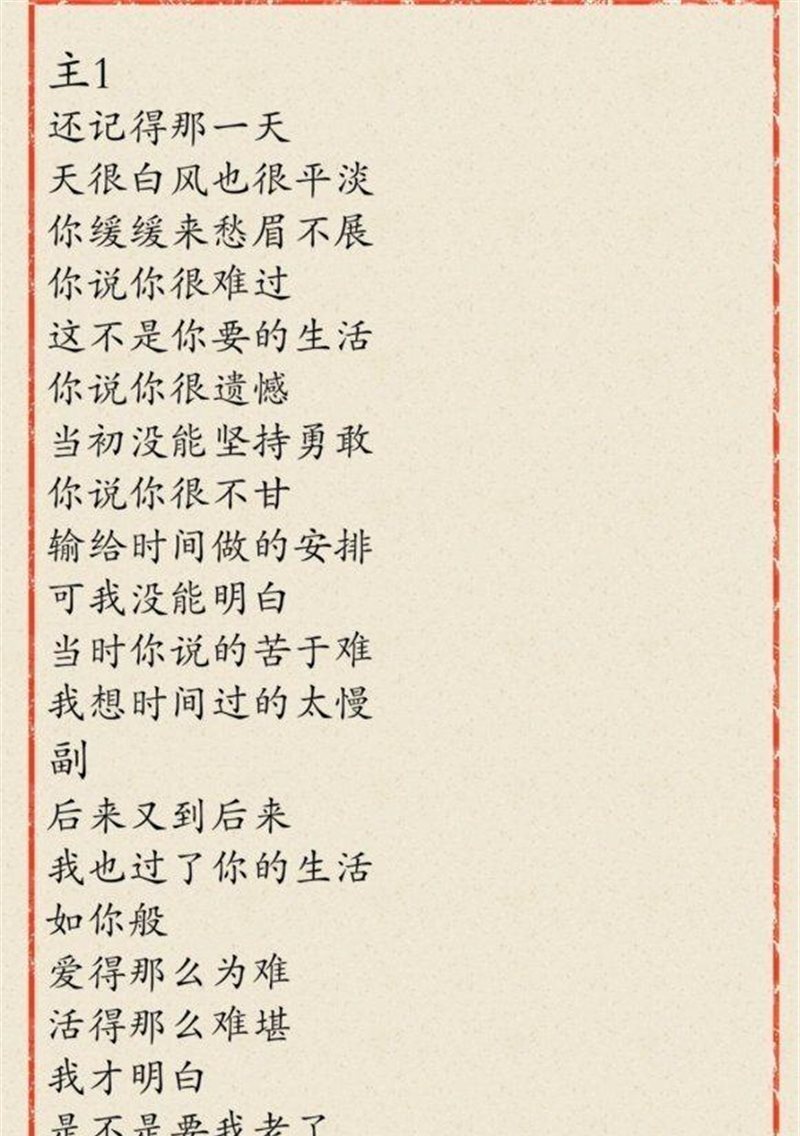 主1
还记得那一天
天很白风也很平淡
你缓缓来愁眉不展
你说你很难过
这不是你要的生活
你说你很遗憾
当初没能坚持勇敢
你说你很不甘
输给时间做的安排
可我没能明白
当时你说的苦于难
我想时间过的太慢
副
后来又到后来
我也过了你的生活
如你般
爱得那么为难
活得那么难堪
我才明白
是不是要我老了